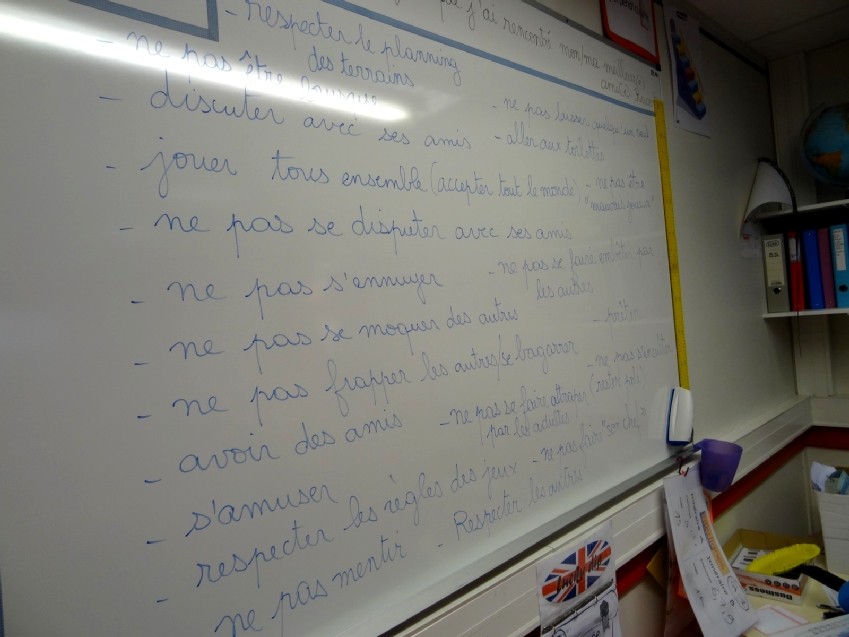 que j'ai rencontré mon/ma meilleur(e)
ami(e)
- respecter le planning
des terrains
- ne pas être
- discuter avec ses amis
- ne pas laisser un seul
- aller aux toilettes
- jouer tous ensemble (accepter tout le monde)
- ne pas être
"mauvais joueur"
- ne pas se disputer avec ses amis
- ne pas s'ennuyer
- ne pas se faire embêter par
les autres
- ne pas se moquer des autres
- ne pas frapper les autres/se bagarrer
- avoir des amis
- ne pas se faire attraper
par les adultes
- ne pas
(rester
- s'amuser
- respecter les règles des jeux
- ne pas faire "son chef"
- ne pas mentir
- Respecter les autres